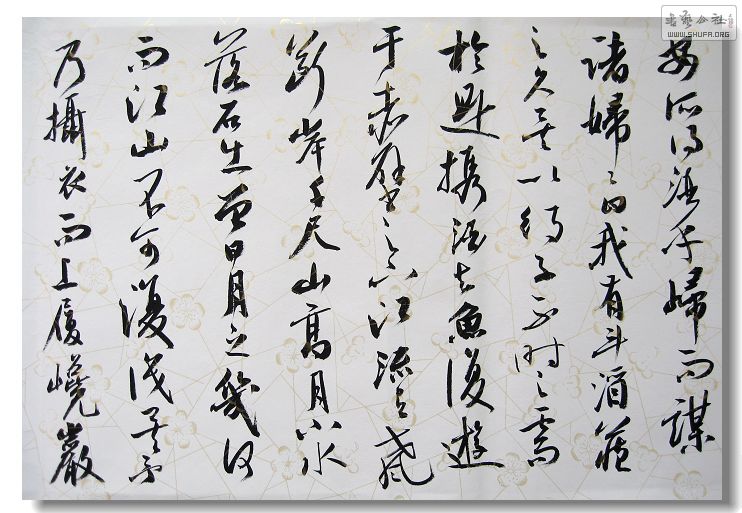 安所得酒乎歸而謀
諸婦〻曰我有斗酒藏
之久矣以待子不時之需
於是攜酒與魚復遊
于赤壁之下江流有聲
斷岸千尺山高月小水
落石出曾日月之幾何
而江山不可復識矣予
乃攝衣而上履巉巖
书艺公社
WWW.SHUFA.ORG